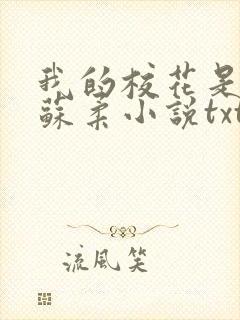 我的校花是
蘇柔小說txt
流風笑